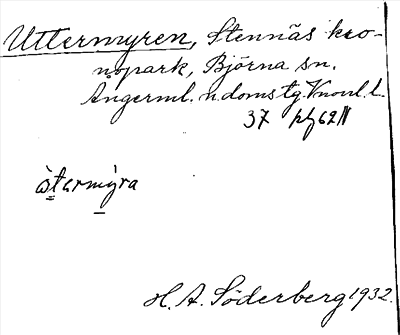 Uttermyren, Stennäs kro-
nopark, Björna sn.
Ångerml. n. doms tg. Vnorrl. l.
37
återmyra
H. A. Söderberg 1932.